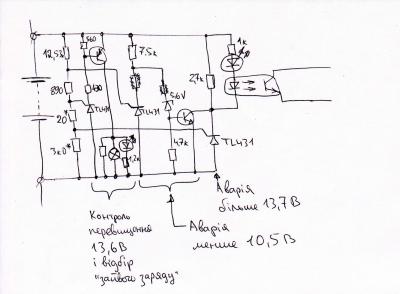 560
12,5к
7,5к
1к
2,7к
890
430
TL431
TL431
5.6V
20
TL431
3к0*
1,2к
4,7к
Аварія
більше 13,7В
Контроль
перевищення
13,6В
і відбір
"зайвого заряду"
Аварія
менше 10,5В